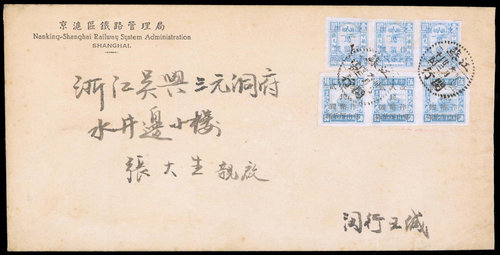 京滬區鐵路管理局
Nanking-Shanghai Railway System Administration
SHANGHAI.
浙江吳興三元洞府
水井邊小樓
張大生親啟
閔行王緘